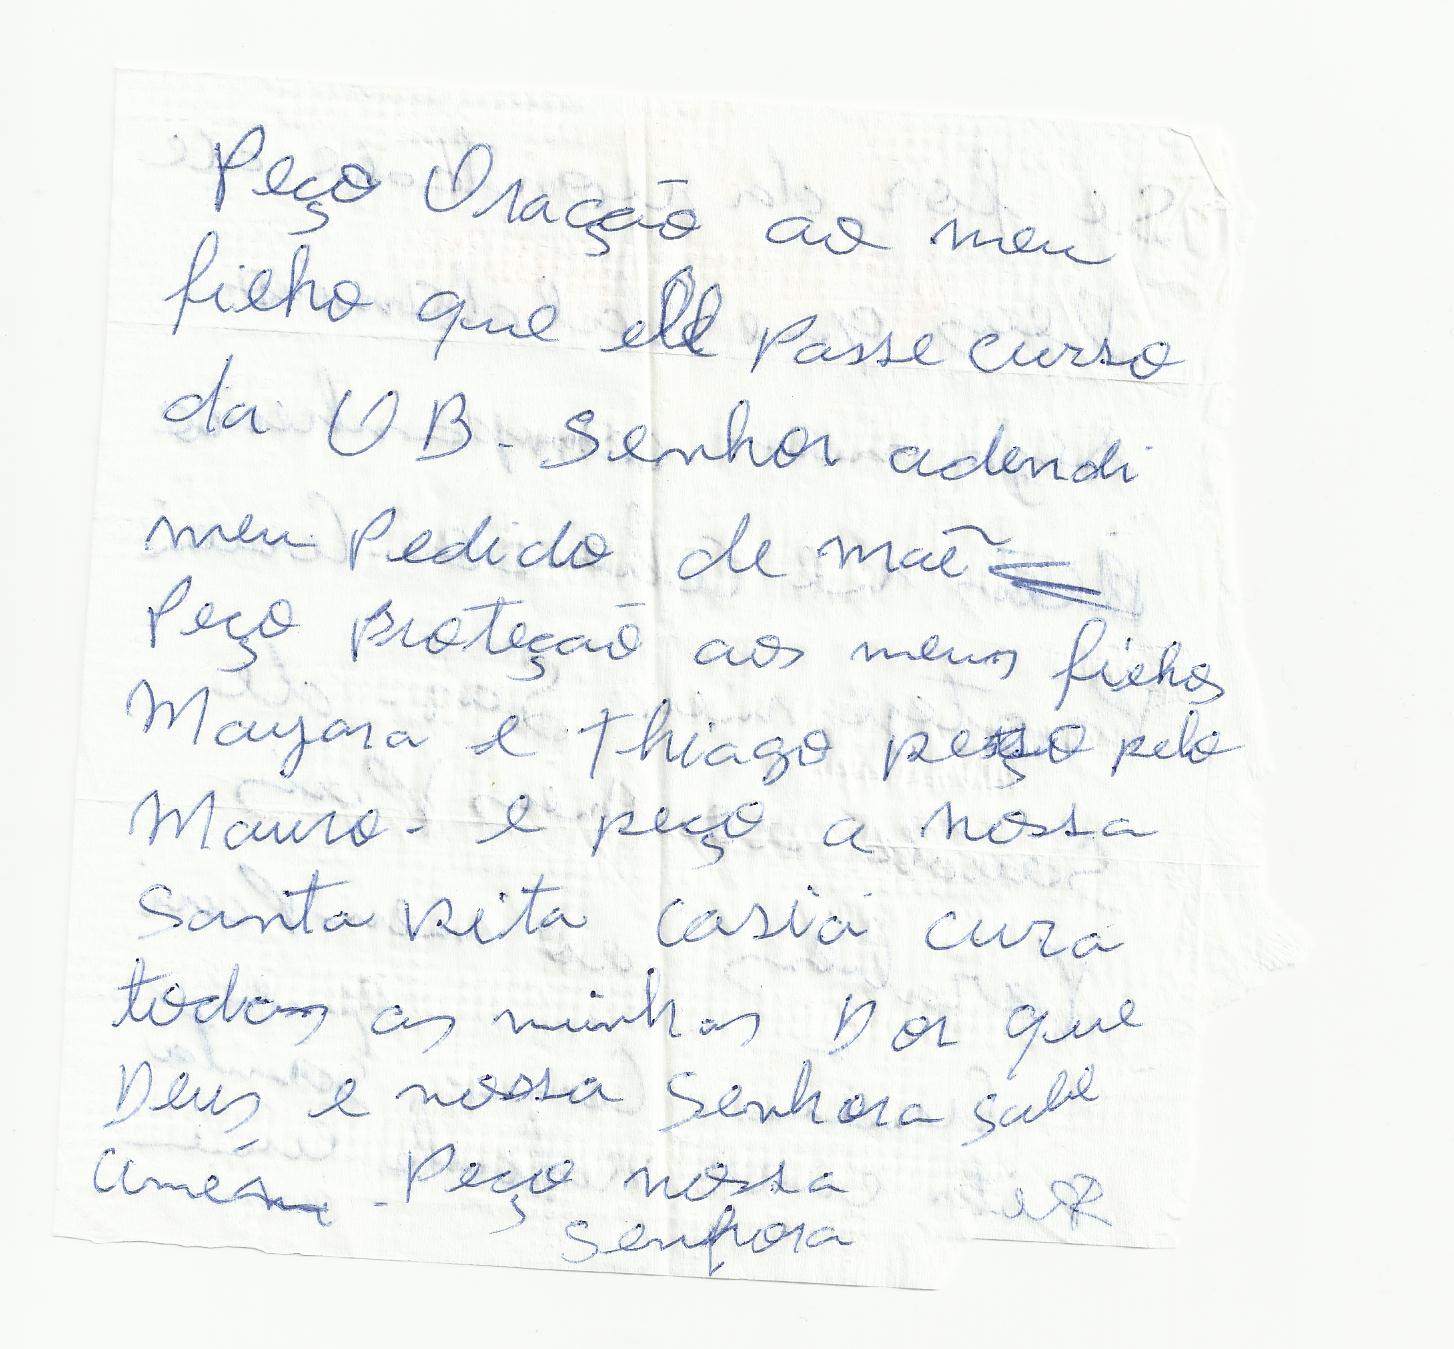 Peço Oração ao meu
filho que ele passe curso
da UB - Senhor adendi
meu Pedido de maẽ
Peço proteção aos meus filhos
Mayara e Thiago peço pelo
Mauro - e peço a nossa
Santa Rita Casia cura
todas as minhas Dor que
Deus e nossa Senhora sabe
améṁ - Peço nossa
Senhora